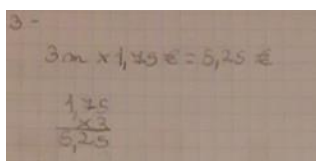 3-
3m x 1,75 € = 5,25 €
1,75
x3
5,25